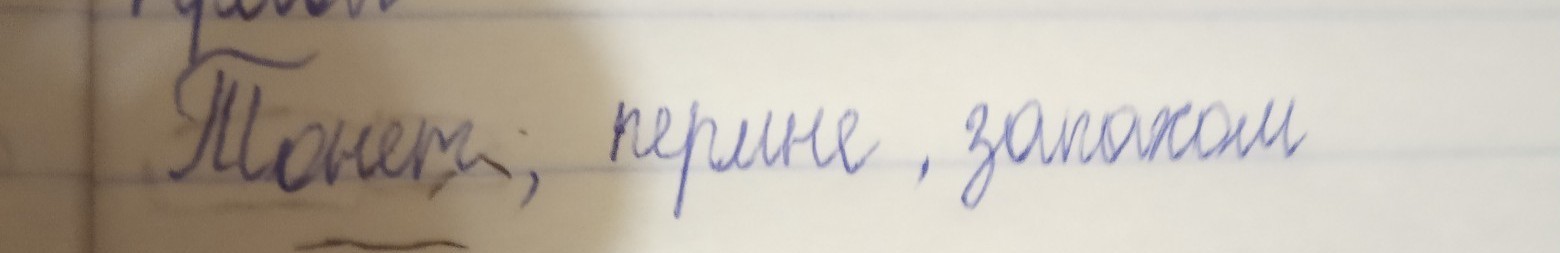 Тонет, перине, запахом